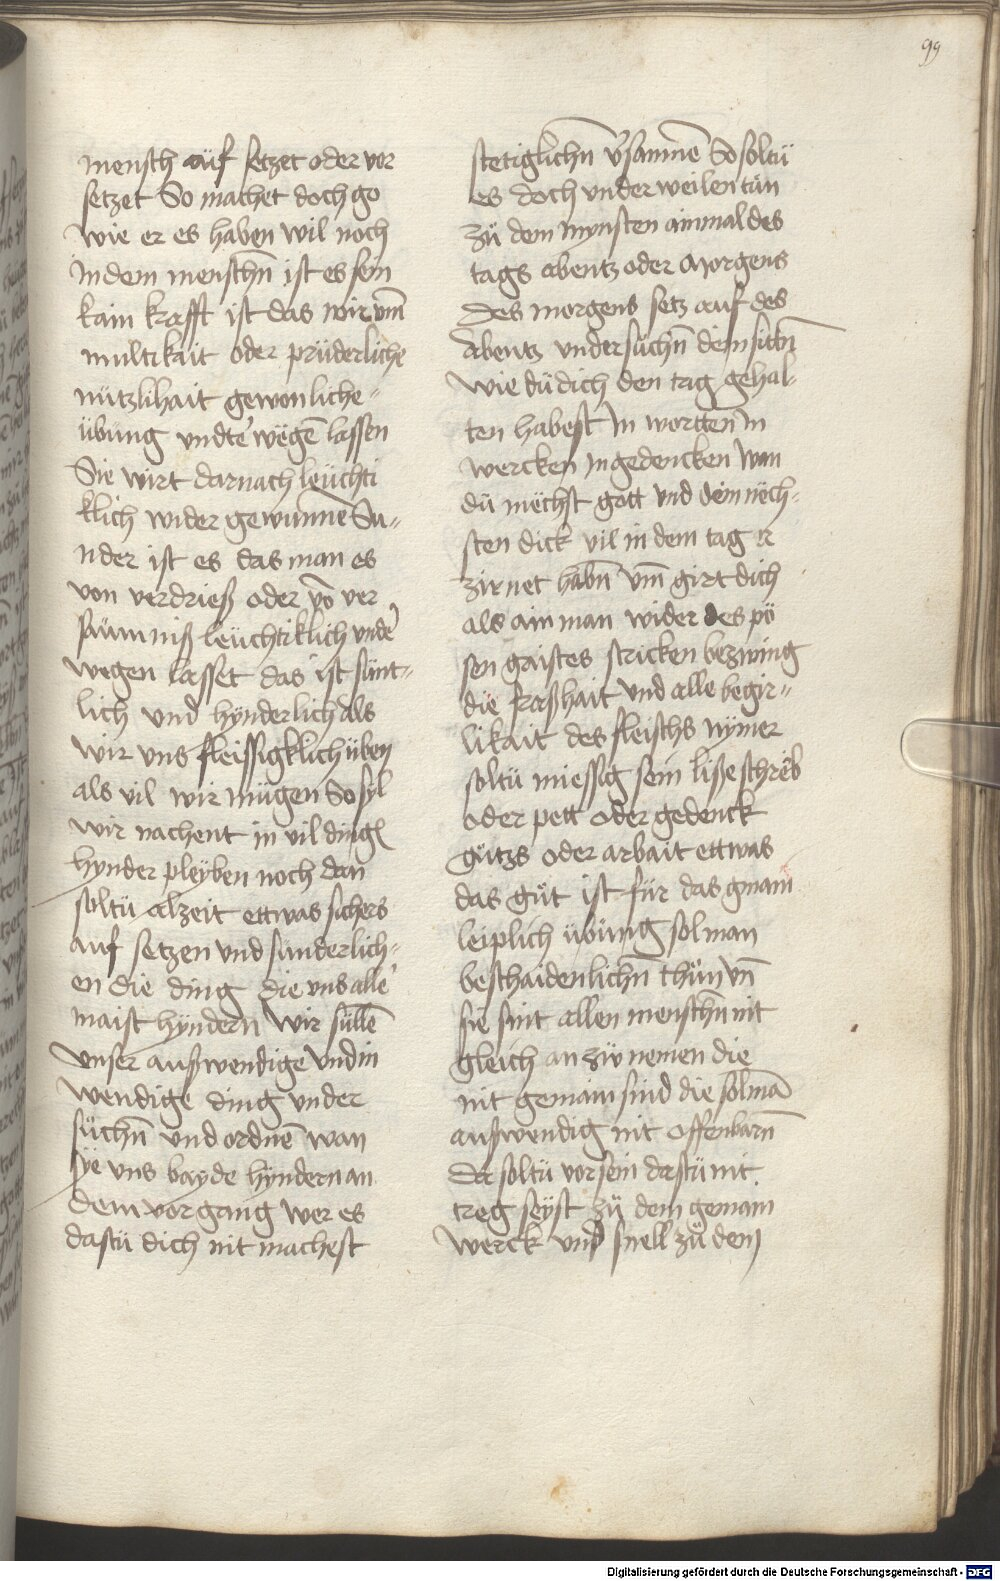 99
mensch aüf setzet oder vor
setzet So machet doch go
wie er es haben wil noch
in dem menschn̄ ist es sein
kain krafft ist das wir vm̄
multikait oder prüderliche
nützlihait gewonliche„
übung vndte wegē lassen
Sie wirt darnach leüchti
klich wider gewunnē Su„
nder ist es das man es
von verdrieß oder vō ver
saumniß leüchtiklich vnde
wegen lasset das ist sünt„
lich vnd hÿnderlich als
wir vns fleissigklich üben
als vil wir mügen So syl
wir nachent in vil dingē
hÿnder pleÿben noch dan
soltü alzeit ettwas sichers
auf setzen vnd sunderlich„
en die ding die vns alle
maist hÿndern wir süllē
vnser außwendige vnd in
wendige ding vnder
süchn̄ vnd ordnē wan
sÿe vns bayde hÿndern an
dem vorgang wer es
dastü dich nit machest
stetiglichn̄ v̄samnē So soltü
es doch vnder weilen tün
zü dem mynsten ainmal des
tags abentz oder morgens
Des morgens setz auf des
abentz vndersüchn̄ dein sittn̄
wie dü dich den tag gehal„
ten habest In wortten in
wercken in gedencken wan
dü mëchst gott vnd dein nëch„
sten dick vil in dem tag er
zirnet habn̄ vm̄ girt dich
als ain man wider des pö
sen gaistes stricken bezwing
die fraßhait vnd alle begir„
likait des fleischs nÿmer
soltü miessig sein liße schrëb
oder pett oder gedenck
gütz oder arbait ettwas
das güt ist für das gmain
leiplich übüng sol man
beschaidenlichn̄ thün vn̄
sie sint allen menschn̄ nit
gleich an zw nemen die
nit gemain sind die sol mā
außwendig nit offenbarn̄
Da soltü vor sein dastü nit
treg seÿst zü dem gemain
werck vnd snell zü dem
Digitalisierung gefördert durch die Deutsche Forschungsgemeinschaft - DFG